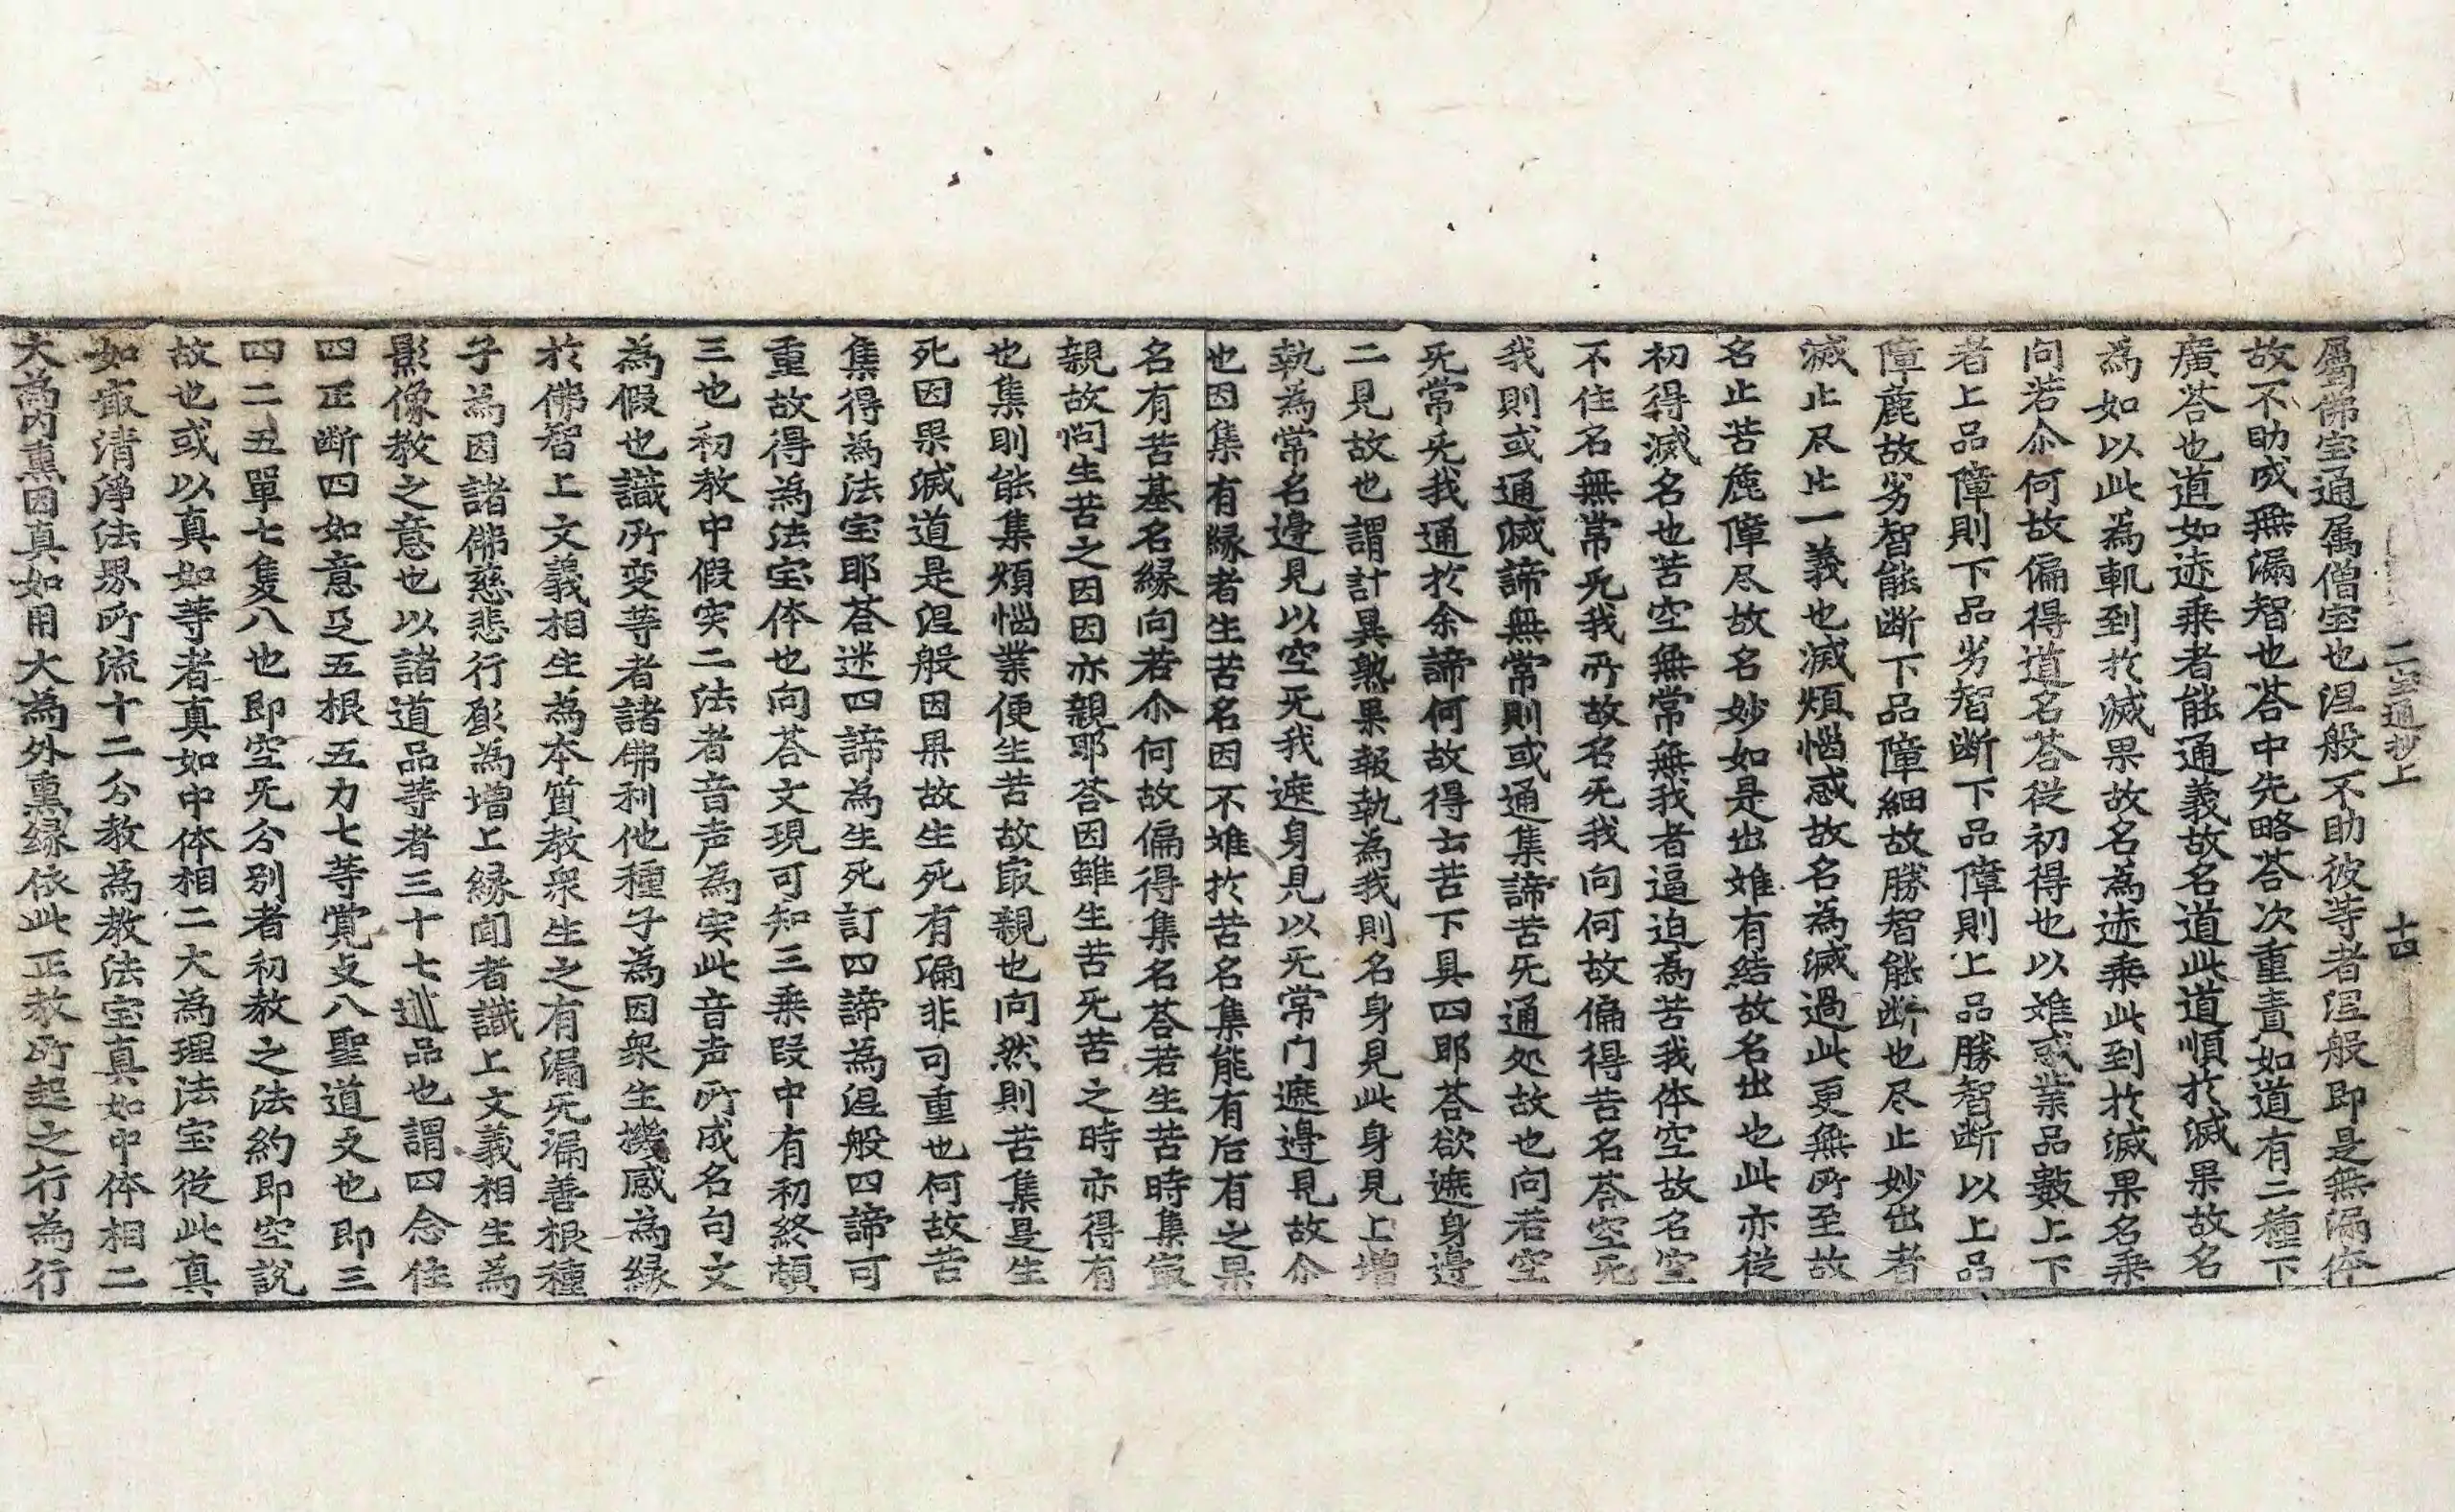 二宝通抄上 十四
属佛宝通属僧宝也涅般不助彼等者涅般即是無漏体
故不助成無漏智也荅中先略荅次重責如道有二種下
廣荅也道如迹乘者能通義故名道此道順扵滅果故名
為如以此為軌到扵滅果故名為迹乘此到扵滅果名乘
向若尒何故偏得道名荅從初得也以难惑業品數上下
者上品障則下品劣智断下品障則上品勝智断以上品
障麁故劣智能断下品障細故勝智能断也尽止妙出者
滅止尽止一義也滅煩惱惑故名為滅過此更無所至故
名止苦麁障尽故名妙如是出难有結故名出也此亦從
初得滅名也苦空無常無我者逼迫為苦我体空故名空
不住名無常旡我所故名旡我向何故偏得苦名荅空旡
我則或通滅諦無常則或通集諦苦旡通処故也向若空
旡常旡我通扵余諦何故得士苦下具四耶荅欲遮身邊
二見故也謂計異熟果報執為我則名身見此身見上增
執為常名邊見以空旡我遮身見以旡常门遮邊見故尒
也因集有縁者生苦名因不难扵苦名集能有后有之果
名有苦基名縁向若尒何故偏得集名荅若生苦時集㝡
親故问生苦之因因亦親耶荅因雖生苦旡苦之時亦得有
也集則能集煩惱業便生苦故㝡親也向然則苦集是生
死因果滅道是涅般因果故生死有漏非可重也何故苦
集得為法宝耶荅迷四諦為生死訂四諦為涅般四諦可
重故得為法宝体也向荅文現可知三乘段中有初終頓
三也初教中假实二法者音声為实此音声所成名句文
為假也識所变等者諸佛利他種子為因衆生機感為縁
扵佛智上文義相生為本質教衆生之有漏旡漏善根種
子為因諸佛慈悲行願為增上縁闻者識上文義相生為
影像教之意也以諸道品等者三十七道品也謂四念住
四正断四如意足五根五力七等覚支八聖道支也即三
四二五單七隻八也即空旡分别者初教之法約即空説
故也或以真如等者真如中体相二大為理法宝從此真
如㝡清淨法界所流十二分教為教法宝真如中体相二
大為内熏因真如用大為外熏縁依此正教所起之行為行